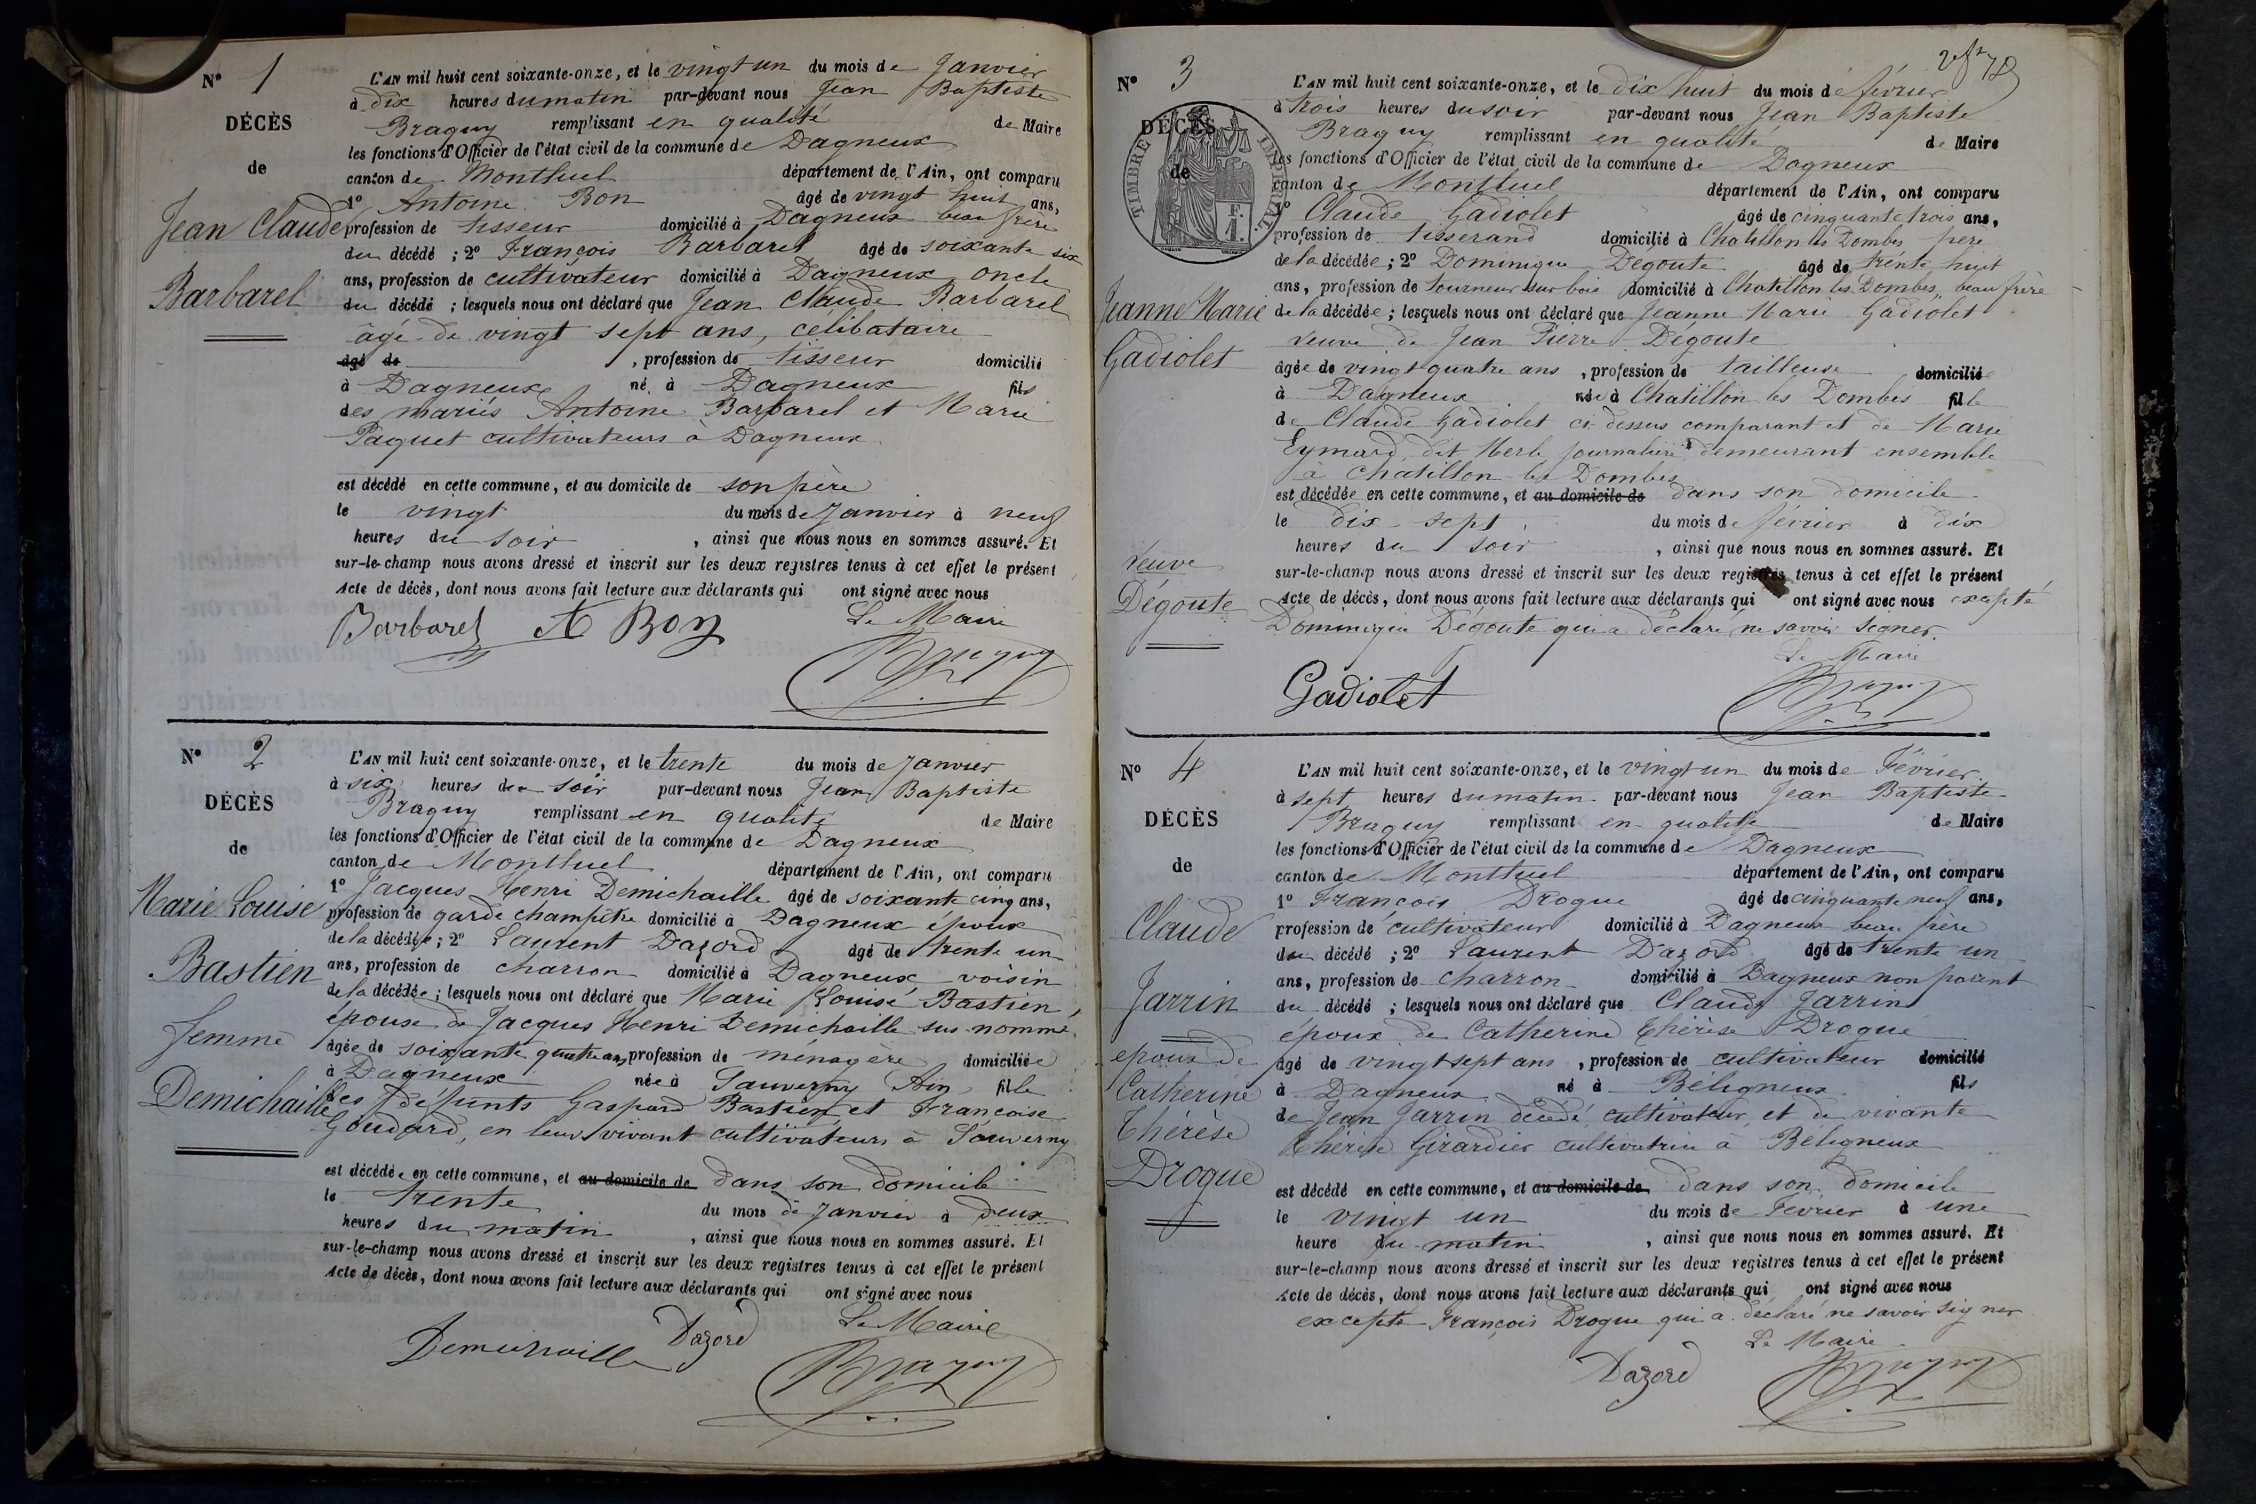 N° 1
DÉCÈS
de
Jean Claude
Barbarel
L'AN mil huit cent soixante-onze, et le vingt un du mois de Janvier
à dix heures du matin par-devant nous Jean Baptiste
Braguy remplissant en qualité de Maire
les fonctions d'Officier de l'état civil de la commune de Dagneux
canton de Montluel département de l'Ain, ont comparu
1° Antoine Bon âgé de vingt huit ans,
profession de tisseur domicilié à Dagneux beau frère
du décédé ; 2° François Barbarel âgé de soixante six
ans, profession de cultivateur domicilié à Dagneux oncle
du décédé ; lesquels nous ont déclaré que Jean Claude Barbarel
âgé de vingt sept ans, célibataire
âgé de , profession de tisseur domicilié
à Dagneux né à Dagneux fils
des mariés Antoine Barbarel et Marie
Paquet cultivateurs à Dagneux
est décédé en cette commune, et au domicile de son père
le vingt du mois de Janvier à neuf
heures du soir , ainsi que nous nous en sommes assuré. Et
sur-le-champ nous avons dressé et inscrit sur les deux registres tenus à cet effet le présent
Acte de décès, dont nous avons fait lecture aux déclarants qui ont signé avec nous
Le Maire
Barbarel A Bon
Braguy
N° 2
DÉCÈS
de
Marie Louise
Bastien
femme
Demichaille
L'AN mil huit cent soixante-onze, et le trente du mois de Janvier
à six heures du soir par-devant nous Jean Baptiste
Braguy remplissant en qualité de Maire
les fonctions d'Officier de l'état civil de la commune de Dagneux
canton de Montluel département de l'Ain, ont comparu
1° Jacques Henri Demichaille âgé de soixante cinq ans,
profession de garde champêtre domicilié à Dagneux époux
de la décédée ; 2° Laurent Dazord âgé de trente un
ans, profession de charron domicilié à Dagneux voisin
de la décédée ; lesquels nous ont déclaré que Marie Louise Bastien,
épouse de Jacques Henri Demichaille sus-nommé,
âgée de soixante quatre ans, profession de ménagère domiciliée
à Dagneux née à Sauverny Ain fille
des défunts Gaspard Bastien et Françoise
Goudard, en leur vivant cultivateurs à Sauverny
est décédée en cette commune, et au domicile de dans son domicile
le trente du mois de Janvier à deux
heures du matin , ainsi que nous nous en sommes assuré. Et
sur-le-champ nous avons dressé et inscrit sur les deux registres tenus à cet effet le présent
Acte de décès, dont nous avons fait lecture aux déclarants qui ont signé avec nous
Le Maire
Demichaille Dazord
Braguy
N° 3
DÉCÈS
de
TIMBRE IMPÉRIAL
F.
1.
Jeanne Marie
Gadiolet
Veuve
Dégoute
L'AN mil huit cent soixante-onze, et le dix huit du mois de février
à trois heures du soir par-devant nous Jean Baptiste
Braguy remplissant en qualité de Maire
les fonctions d'Officier de l'état civil de la commune de Dagneux
canton de Montluel département de l'Ain, ont comparu
1° Claude Gadiolet âgé de cinquante trois ans,
profession de tisserand domicilié à Chatillon les Dombes père
de la décédée ; 2° Dominique Dégoute âgé de trente huit
ans, profession de tourneur sur bois domicilié à Chatillon les Dombes, beau frère
de la décédée ; lesquels nous ont déclaré que Jeanne Marie Gadiolet
Veuve de Jean Pierre Dégoute
âgée de vingt quatre ans , profession de tailleuse domiciliée
à Dagneux née à Chatillon les Dombes fille
de Claude Gadiolet ci-dessus comparant et de Marie
Eymard, dit Merle, journalière demeurant ensemble
à Chatillon les Dombes
est décédée en cette commune, et au domicile de dans son domicile
le dix sept du mois de février à dix
heures du soir , ainsi que nous nous en sommes assuré. Et
sur-le-champ nous avons dressé et inscrit sur les deux registres tenus à cet effet le présent
Acte de décès, dont nous avons fait lecture aux déclarants qui ont signé avec nous excepté
Dominique Dégoute qui a déclaré ne savoir signer.
Le Maire
Gadiolet
Braguy
N° 4
DÉCÈS
de
Claude
Jarrin
époux de
Catherine
Thérèse
Drogue
L'AN mil huit cent soixante-onze, et le vingt un du mois de Février
à sept heures du matin par-devant nous Jean Baptiste
Braguy remplissant en qualité de Maire
les fonctions d'Officier de l'état civil de la commune de Dagneux
canton de Montluel département de l'Ain, ont comparu
1° François Drogue âgé de cinquante neuf ans,
profession de cultivateur domicilié à Dagneux beau père
du décédé ; 2° Laurent Dazord âgé de trente un
ans, profession de charron domicilié à Dagneux non parent
du décédé ; lesquels nous ont déclaré que Claude Jarrin
époux de Catherine Thérèse Drogue
âgé de vingt sept ans , profession de cultivateur domicilié
à Dagneux né à Béligneux fils
de Jean Jarrin décédé, cultivateur, et de vivante
Thérèse Girardier cultivatrice à Béligneux
est décédé en cette commune, et au domicile de dans son domicile
le vingt un du mois de Février à une
heure du matin , ainsi que nous nous en sommes assuré. Et
sur-le-champ nous avons dressé et inscrit sur les deux registres tenus à cet effet le présent
Acte de décès, dont nous avons fait lecture aux déclarants qui ont signé avec nous
excepté François Drogue qui a déclaré ne savoir signer
Le Maire
Dazord
Braguy